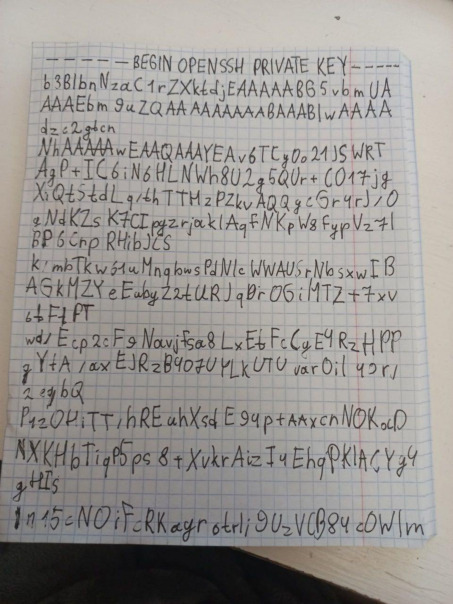 -----BEGIN OPENSSH PRIVATE KEY-----
b3BlbnNzaC1rZXktdjEAAAAABG5vbmUA
AAAEbm9uZQAAAAAAAAABAAABlwAAAA
dzc2gtcn
NhAAAAAwEAAQAAAYEAv6TCgOo21JSWRT
AgP+IC6iN6HLNWh8U2g5QUr+CO17jg
XiQt5tdLg/thTTMzPZkvAQQgcGr4rJ/O
gNdKZsK7CIpyzrjaklAqfNKpW8fypVz7l
BP6CnpRHibJCS
k/mbTkw61uMnqbwsPdNlcWWAUSrNbsxwIB
AGkMZYeEubyZ2tURJqBrOGiMTZ+7xv
6tFtPT
wd/Ecp2cF9NavjFsa8LxEtFcCyE4RzHPP
gYtA/axEJRzB4O7UYLkUTUvarOil4Jr/
2egbQ
P1zOHiTT/hREuhXsdE94p+AAxcnNOKoD
NXKHbTiqP5ps8+XvkrAizI4EhqPKlACYg4
gHIs
ln15cNOiFcRKagrotrlj9UzVCB84cOWlm